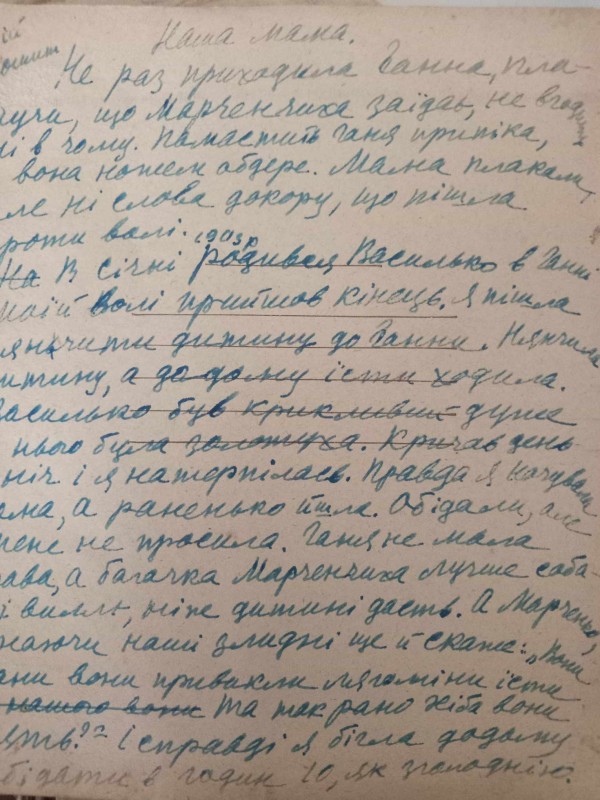 Наша мама.
ій
ошит
Не раз приходила Ганна, пла-
аучи, що Марченчиха заїдає, не вгодит
ні в чому. Помастить Ганя припіка,
вона ножем обдере. Мама плакали,
ле ні слова докору, що пішла
роти волі.
На В січні родився Василько в Ганни
моїй волі прийшов кінець. Я пішла
янчити дитину до Ганни. Нянчила
итину, а до дому їсти ходила.
Василько був крикливий дуже
нього була золотуха. Кричав день
ніч і я натерпілась. Правда я ночувала
ома, а раненько йшла. Обідали, але
мене не просила. Ганя не мала
рава, а багачка Марченчиха лучше соба-
і виллє, ніже дитині дасть. А Марченко,
наючи наші злидні ще й скаже: „Вони
ани вони привикли
їсти
нашого вони та так рано хіба вони
ять?" І справді я бігла додому
бідати в годин 10, як зголоднію.